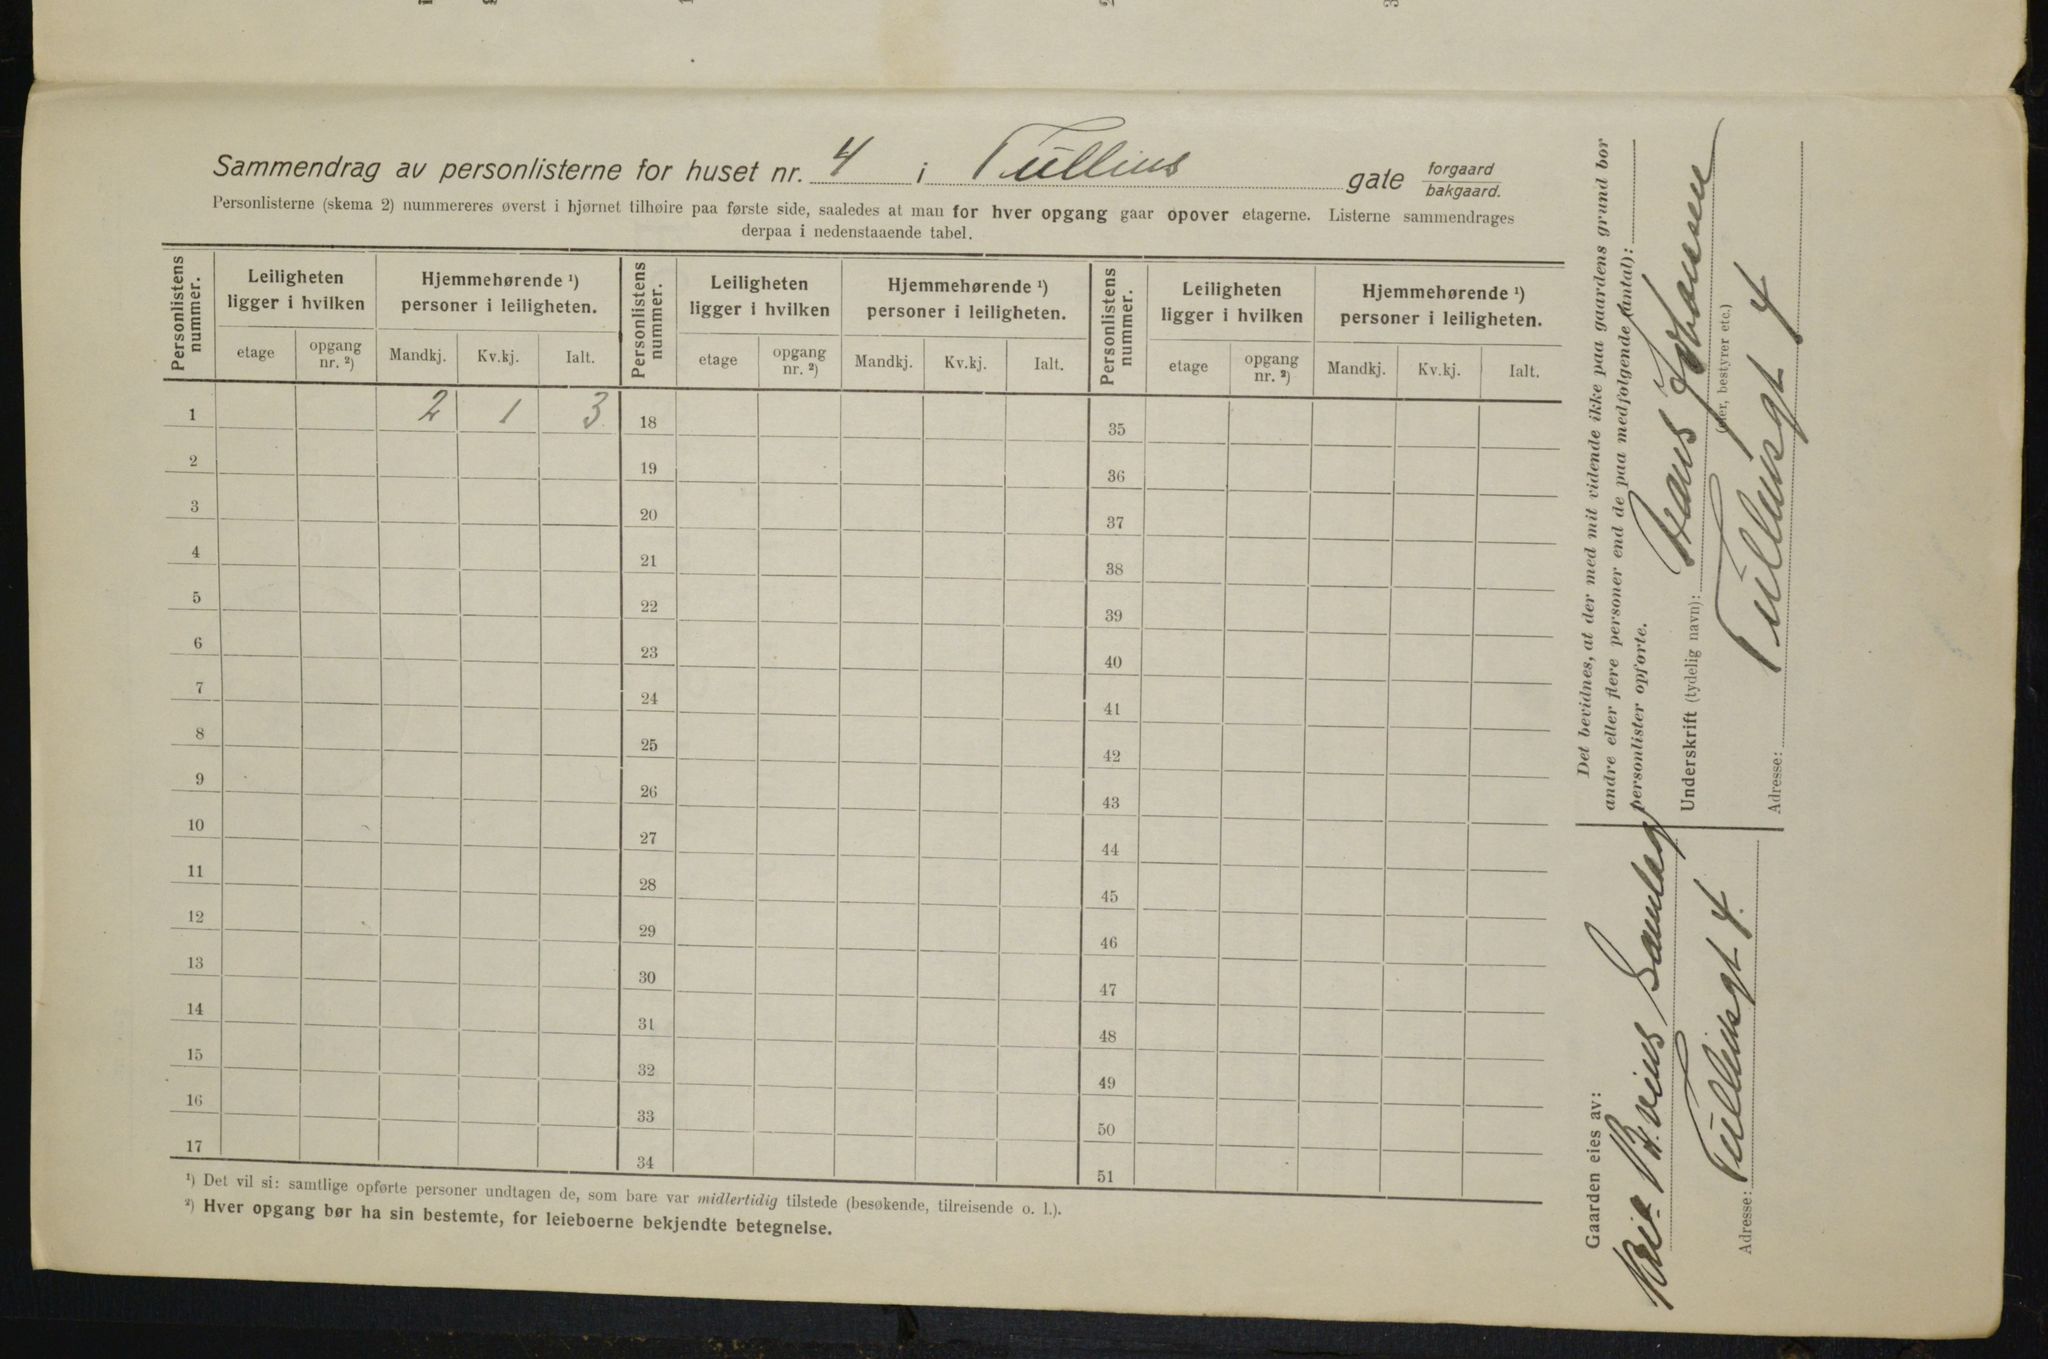 Sammendrag av personlisterne for huset nr. 4 i Tullins gate forgaard bakgaard.
Personlisterne (skema 2) nummereres øverst i hjørnet tilhøire paa første side, saaledes at man for hver opgang gaar opover etagerne. Listerne sammendrages
derpaa i nedenstaaende tabel.
Personlistens nummer. Leiligheten ligger i hvilken Hjemmehørende ¹) personer i leiligheten. Personlistens nummer. Leiligheten ligger i hvilken Hjemmehørende ¹) personer i leiligheten. Personlistens nummer. Leiligheten ligger i hvilken Hjemmehørende ¹) personer i leiligheten.
etage opgang nr. ²) Mandkj. Kv.kj. Ialt. etage opgang nr. ²) Mandkj. Kv.kj. Ialt. etage opgang nr. ²) Mandkj. Kv.kj. Ialt.
1 2 1 3 18 35
2 19 36
3 20 37
4 21 38
5 22 39
6 23 40
7 24 41
8 25 42
9 26 43
10 27 44
11 28 45
12 29 46
13 30 47
14 31 48
15 32 49
16 33 50
17 34 51
¹) Det vil si: samtlige opførte personer undtagen de, som bare var midlertidig tilstede (besøkende, tilreisende o. l.).
²) Hver opgang bør ha sin bestemte, for leieboerne bekjendte betegnelse.
Gaarden eies av:
Samlag
Adresse: Tullinsgt 4.
Det bevidnes, at der med mit vidende ikke paa gaardens grund bor
andre eller flere personer end de paa medfølgende (antal):
personlister opførte.
Underskrift (tydelig navn): Hans Johansen
(eier, bestyrer etc.)
Adresse: Tullinsgt 4